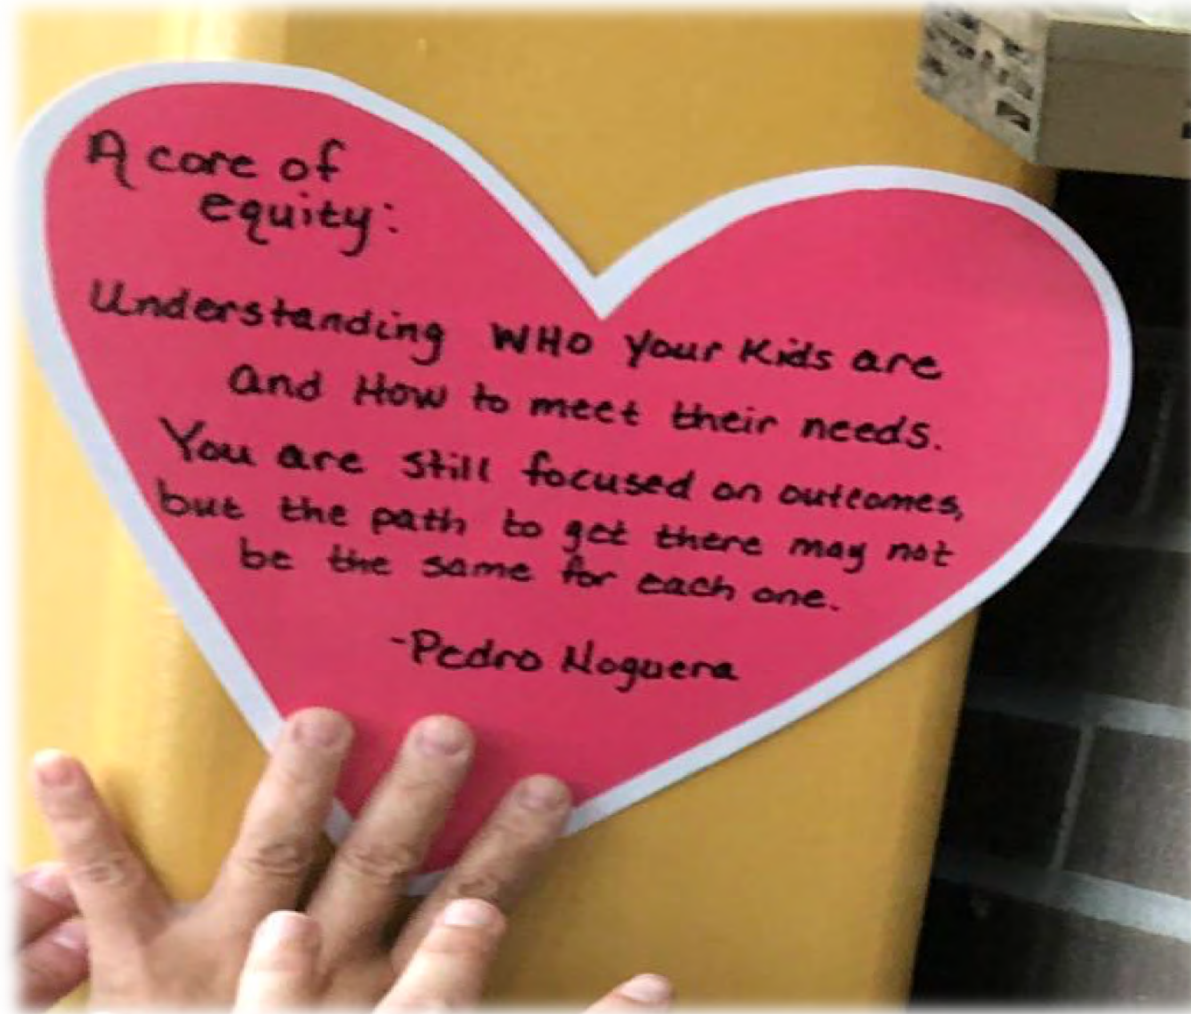 A core of
equity:
Understanding WHO your Kids are
and How to meet their needs.
You are still focused on outcomes,
but the path to get there may not
be the same for each one.
-Pedro Noguera